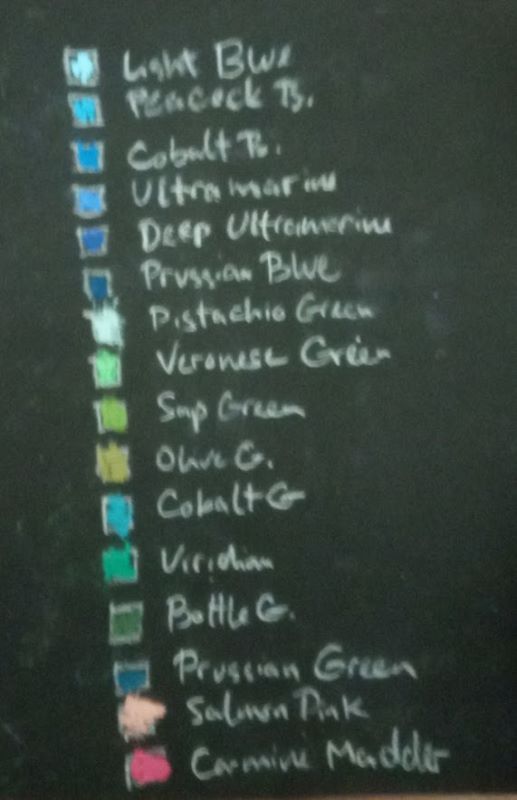 Light Blue
Peacock B.
Cobalt B.
Ultramarine
Deep Ultramarine
Prussian Blue
Pistachio Green
Veronese Green
Sap Green
Olive G.
Cobalt G
Viridian
Bottle G.
Prussian Green
Salmon Pink
Carmine Madder